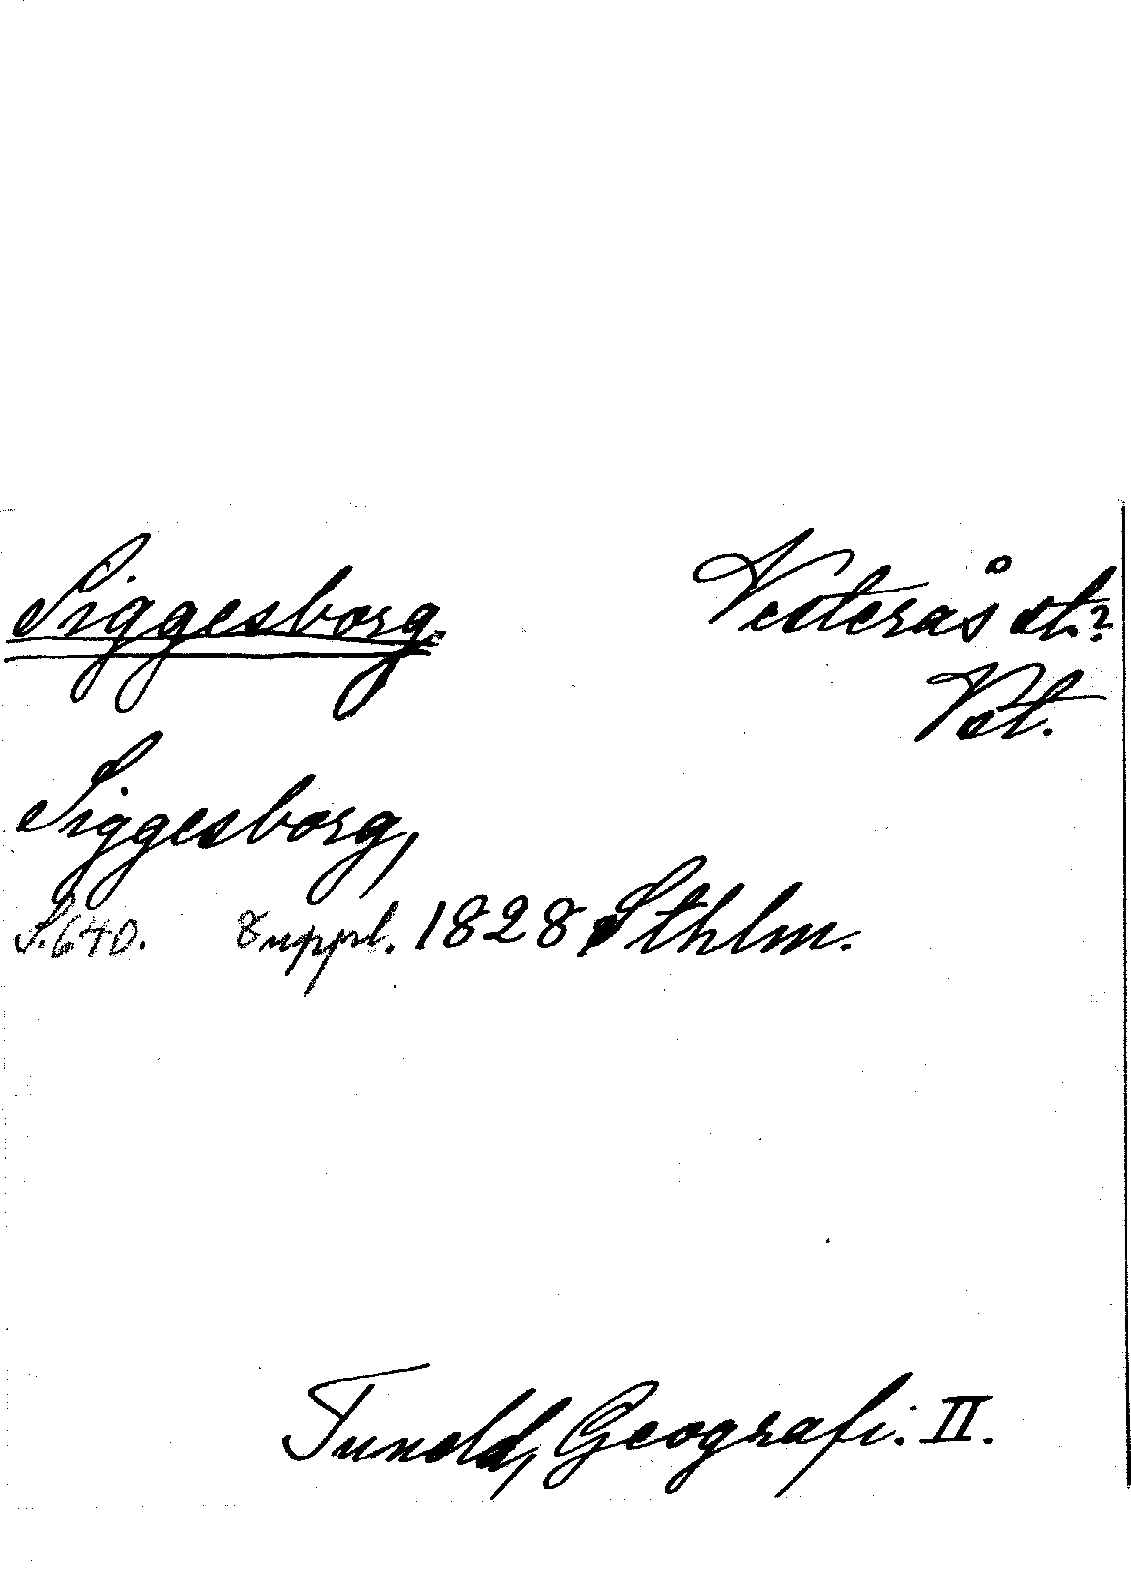 Siggesborg. Vesterås st.?
Vst.
Siggesborg,
S. 640. 8 uppl. 1828 Sthlm.
Tuneld, Geografi. II.